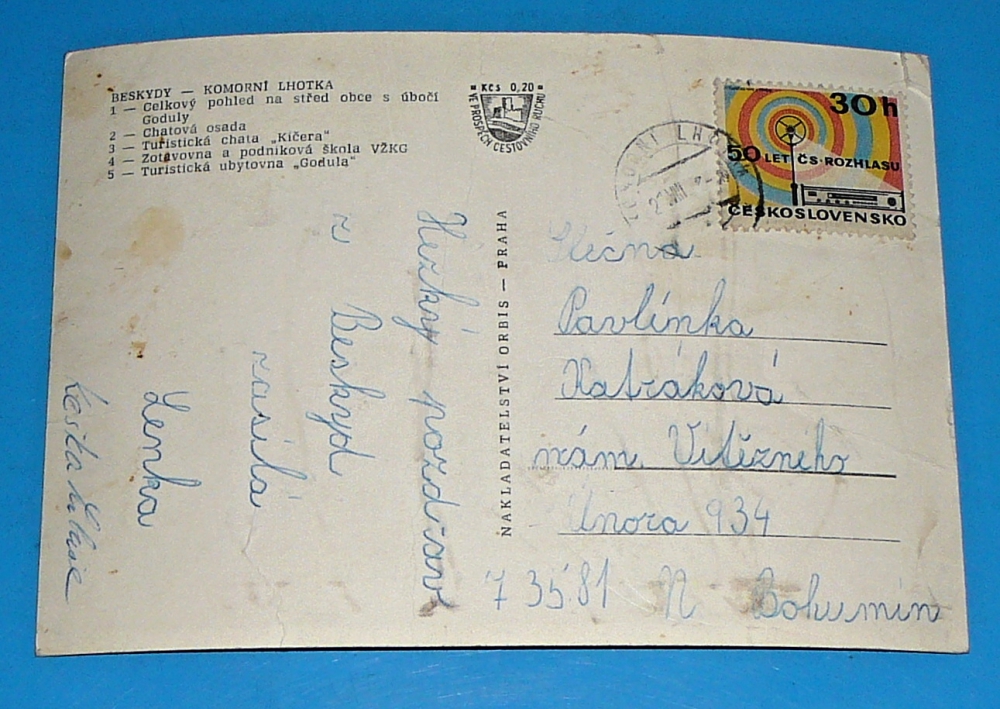 BESKYDY — KOMORNÍ LHOTKA
1 — Celkový pohled na střed obce s úbočí
Goduly
2 — Chatová osada
3 — Turistická chata „Kičera"
4 — Zotavovna a podniková škola VŽKG
5 — Turistická ubytovna „Godula"
Kčs 0,20
VE PROSPĚCH CESTOVNÍHO RUCHU
KOMORNÍ LHOTKA
30h
50 LET ČS. ROZHLASU
ČESKOSLOVENSKO
NAKLADATELSTVÍ ORBIS — PRAHA
Hezký pozdrav
z Beskyd
zasílá
Lenka
Slečna
Pavlínka
Katráková
nám. Vítězného
Února 934
735 81 N Bohumín